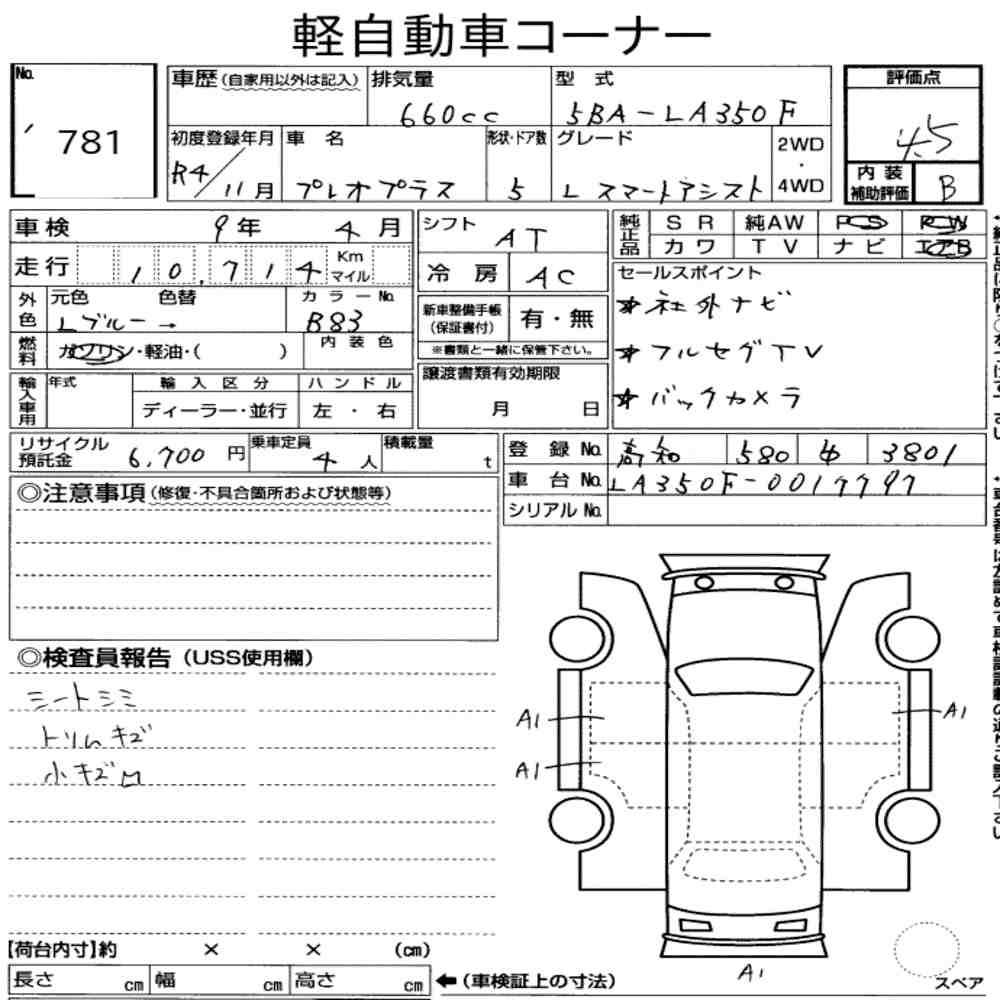 軽自動車コーナー
No. 781
車歴(自家用以外は記入) 排気量 660cc 型式 5BA-LA350F
評価点 4.5
初度登録年月 R4/11月 車名 プレオプラス 形状・ドア数 5 グレード L スマートアシスト 2WD・4WD
内装補助評価 B
車検 9年 4月
シフト AT
純正品 SR 純AW PS PW
カワ TV ナビ エアB
走行 10,714 Km マイル
冷房 AC
セールスポイント
★社外ナビ
★フルセグTV
★バックカメラ
外色 元色 Lブルー→ 色替 カラーNo. B83
新車整備手帳(保証書付) 有・無
※書類と一緒に保管下さい。
燃料 ガソリン・軽油・( ) 内装色
輸入車用 年式 輸入区分 ハンドル
ディーラー・並行 左・右
譲渡書類有効期限
月 日
リサイクル預託金 6,700円 乗車定員 4人 積載量 t
登録No. 高知 580 4 3801
車台No. LA350F-0017797
シリアルNo.
◎注意事項(修復・不具合箇所および状態等)
◎検査員報告(USS使用欄)
シートシミ
トリムキズ
小キズ凹
A1
A1
A1
A1
【荷台内寸】約 × × (cm)
長さ cm 幅 cm 高さ cm ←(車検証上の寸法)
スペア